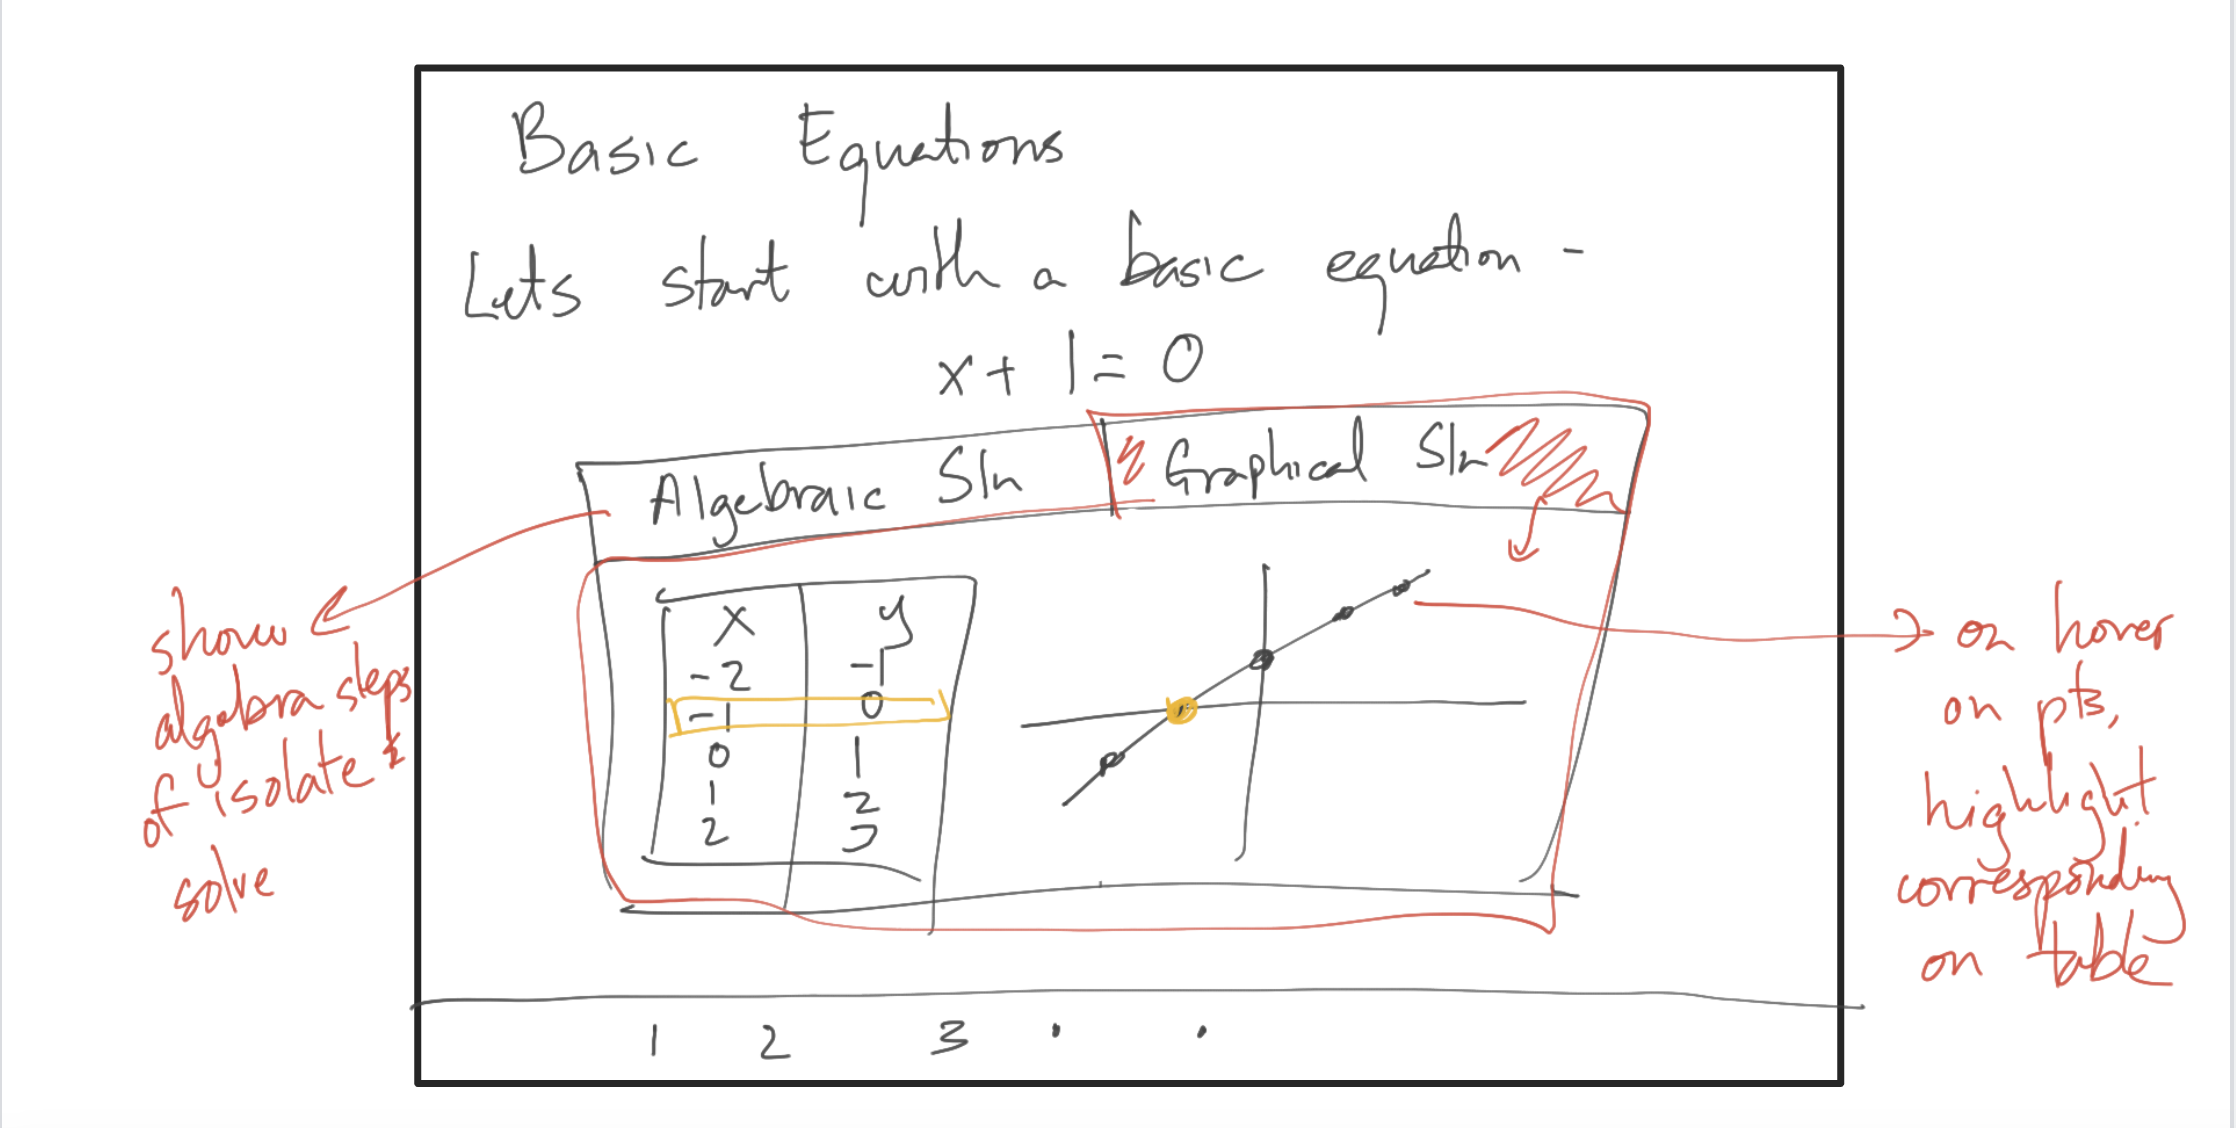 Basic Equations
Lets start with a basic equation -
x + 1 = 0
Algebraic Sln
Graphical Sln
x y
-2 -1
-1 0
0 1
1 2
2 3
show
algebra steps
of isolate &
solve
on hover
on pts,
highlight
corresponding
on table
1 2 3 . .